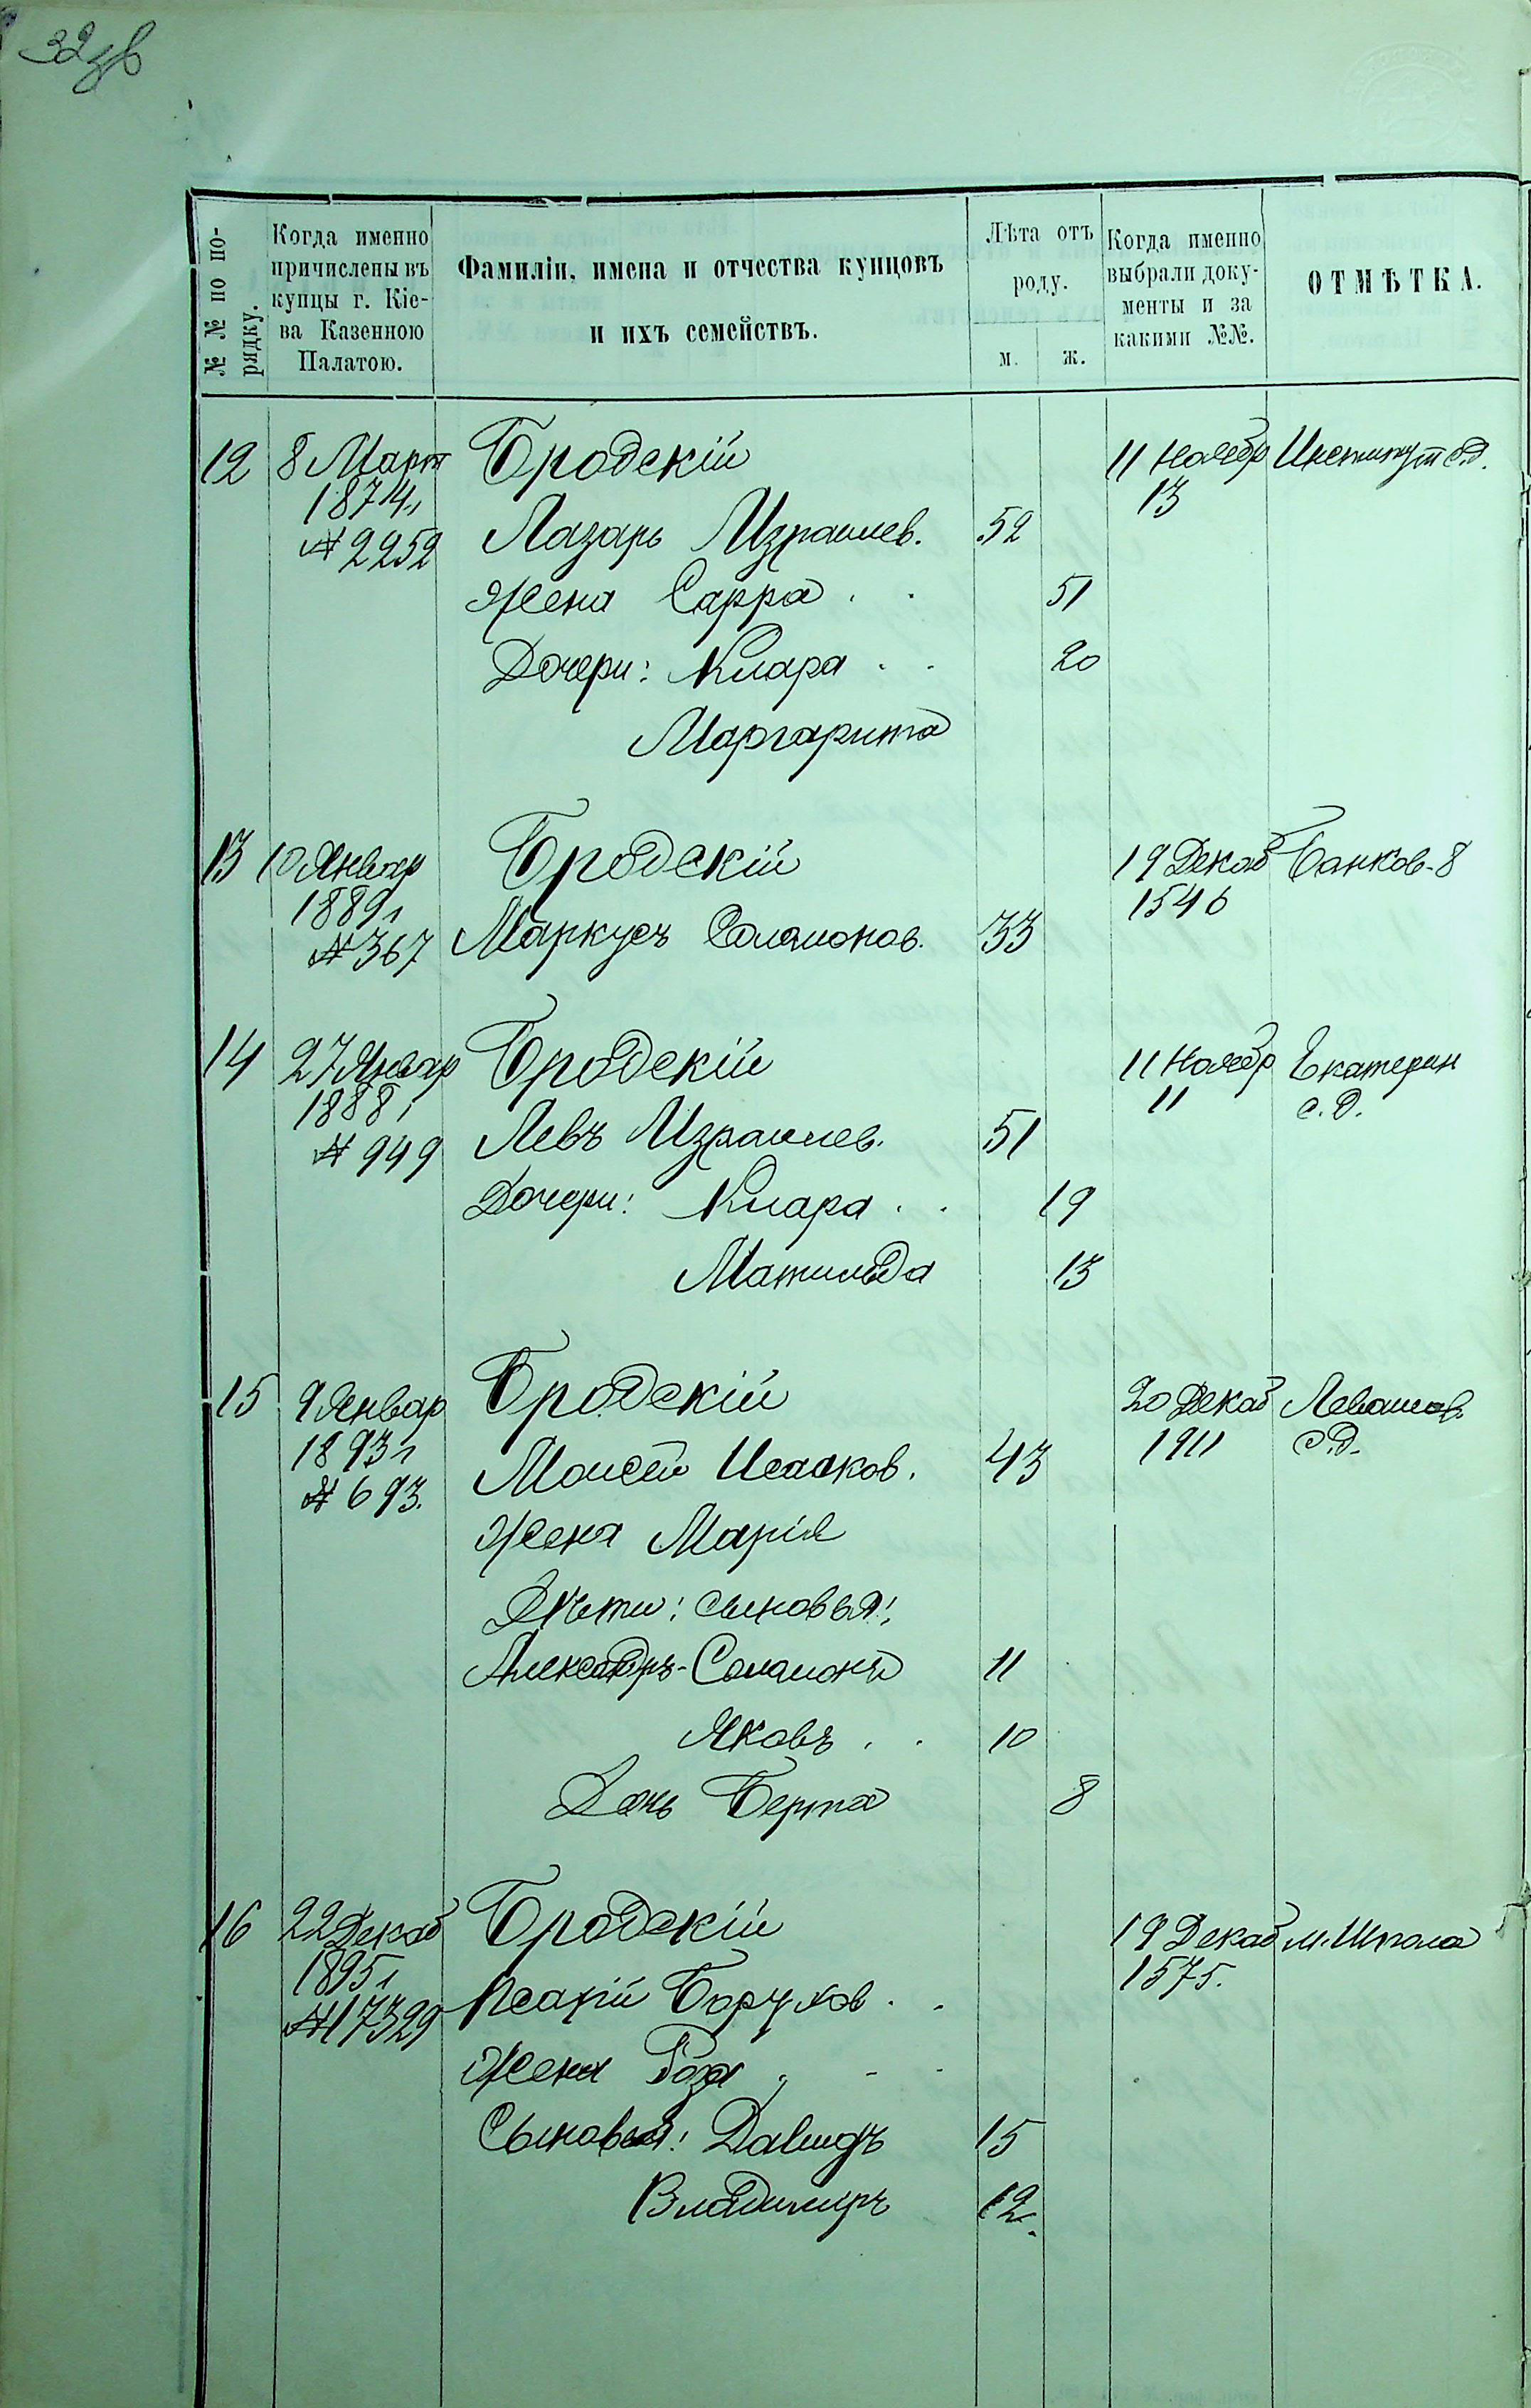 32 зв
№ № по по-
рядку.
Когда именно
причислены въ
купцы г. Кіе-
ва Казенною
Палатою.
Фамиліи, имена и отчества купцовъ
и ихъ семействъ.
Лѣта отъ
роду.
м. ж.
Когда именно
выбрали доку-
менты и за
какими №№.
ОТМѢТКА.
12 8 Март Бродскій 11 Ноябр Институт с.д.
1874 г 13
№ 2252 Лазарь Израилев. 52
Жена Сарра . . 51
Дочери: Клара . . 20
Маргарита
13 10 Январ Бродскій 19 Декаб Банков. 8
1889 г 1546
№ 367 Маркусъ Соломонов. 33
14 27 Январ Бродскій 11 Ноябр Екатерин
1888 г 11 с. д.
№ 949 Левъ Израилев. 51
Дочери: Клара . . 19
Матильда 13
15 9 Январ Бродскій 20 Декаб Левашов.
1893 г 1911 с.д.
№ 693. Моисей Исааков. 43
Жена Марія
Дѣти: сыновья:
Александръ-Соломонъ 11
Яковъ . . 10
Дочь Берта 8
16 22 Декаб Бродскій 19 Декаб м. Шпола
1895 г 1575.
№ 17329 Исакій Борухов . .
Жена Роза
Сыновья: Давидъ 15
Владимиръ 12.